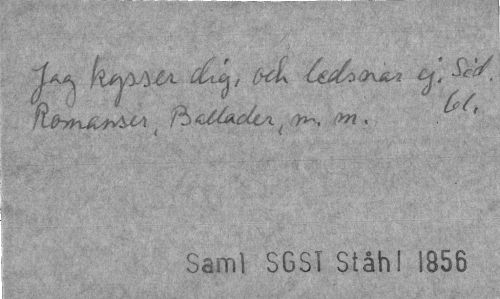 Jag kysser dig, och ledsnar ej. Söd.
Romanser, Ballader, m. m. bl.
Saml SGST Ståhl 1856